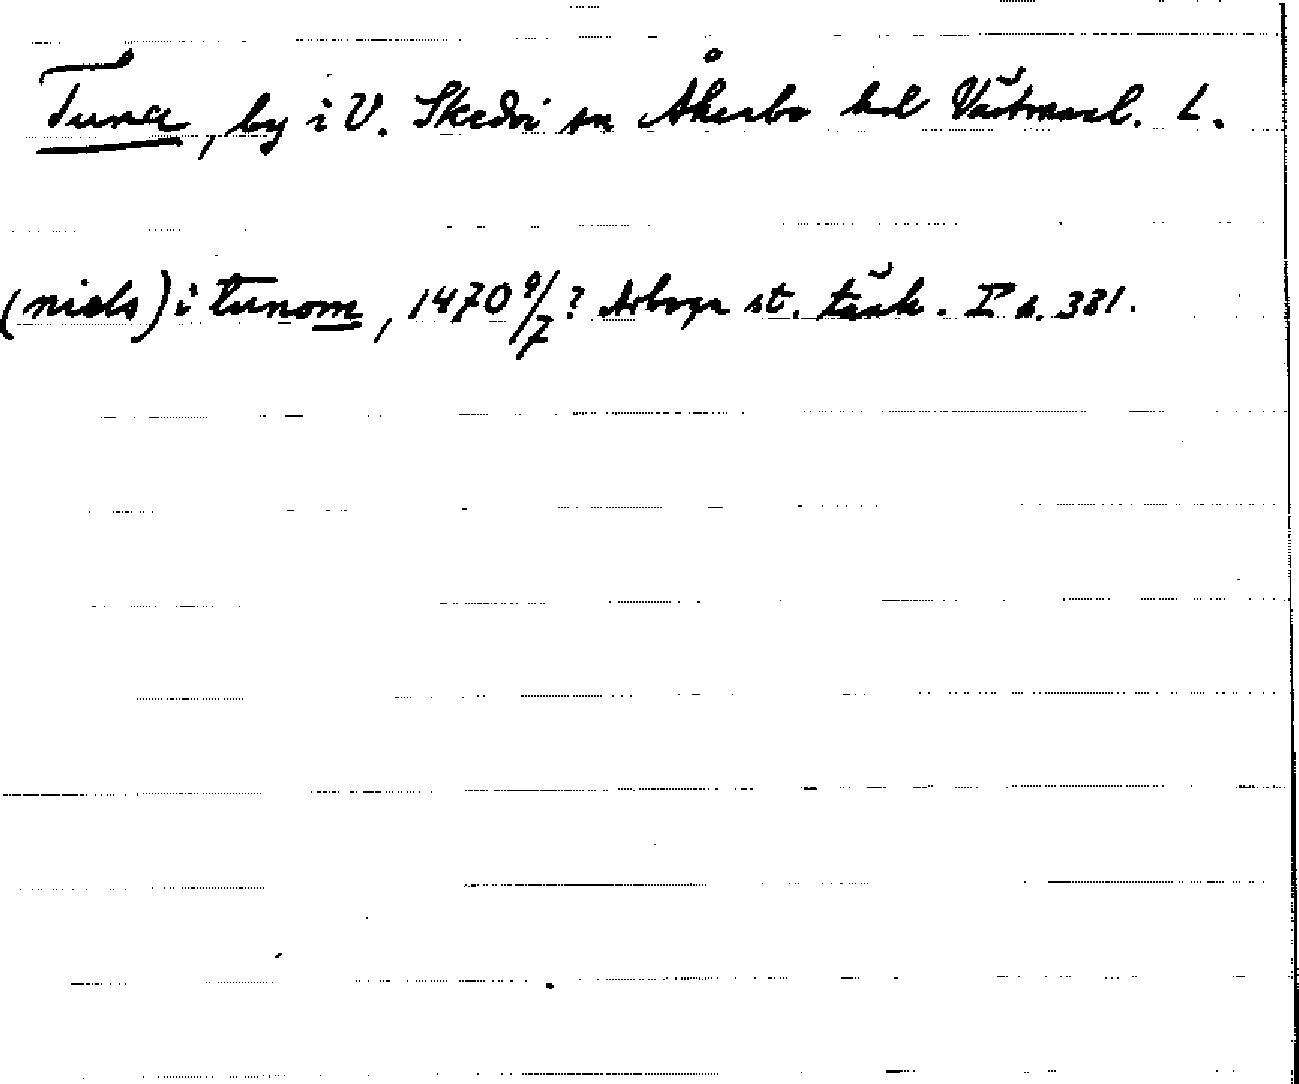 Tuna, by i V. Skedvi sn Åkerbo hd Västmanl. L.
(niels) i tunom, 1470 9/7? Arboga st. tänk. I s. 381.